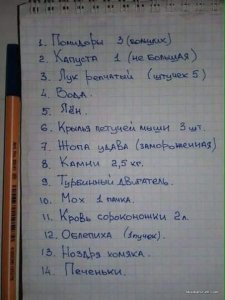 1. Помидоры 3 (больших)
2. Капуста 1 (не большая)
3. Лук репчатый (штучек 5)
4. Вода.
5. Лён.
6. Крылья летучей мыши 3 шт.
7. Жопа удава (замороженная)
8. Камни 2,5 кг.
9. Турбинный двигатель.
10. Мох 1 пачка.
11. Кровь сороконожки 2л.
12. Облепиха (1пучок).
13. Ноздря хомяка.
14. Печеньки.